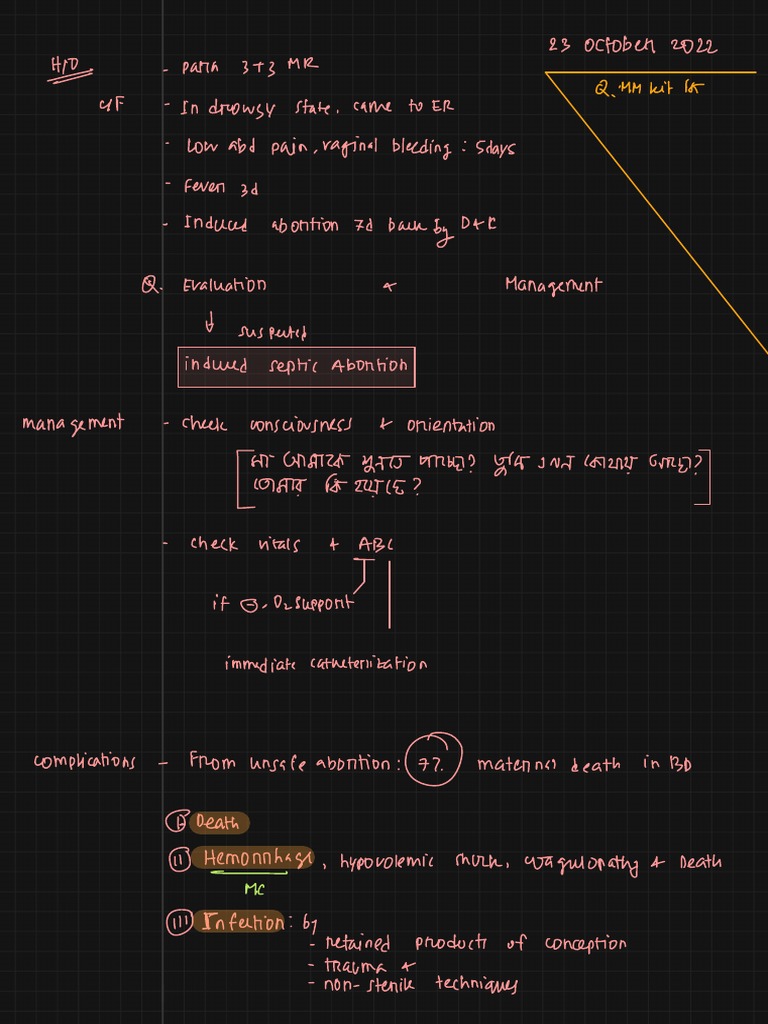 23 October 2022
Q. MM kit কি
H/O - para 3+3 MR
c/F - In drowsy state, came to ER
- Low abd pain, vaginal bleeding : 5days
- Fever 3d
- Induced abortion 7d back by D+C
Q. Evaluation & Management
↓ suspected
induced septic Abortion
management - check consciousness & orientation
[মা আমাকে শুনতে পাচ্ছো? তুমি এখন কোথায় আছো?
তোমার কি হয়েছে?]
- check vitals & ABC
if ⊖, O₂ support
immediate catheterization
complications - From unsafe abortion: 7%. maternal death in BD
I Death
II Hemorrhage, hypovolemic shock, coagulopathy & Death
MC
III Infection: by
- retained products of conception
- trauma &
- non-sterile techniques